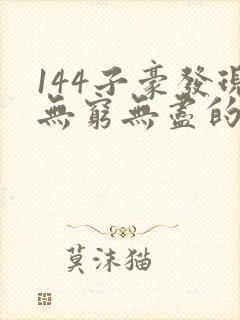 144子豪發現
無窮無盡的
莫沫猫